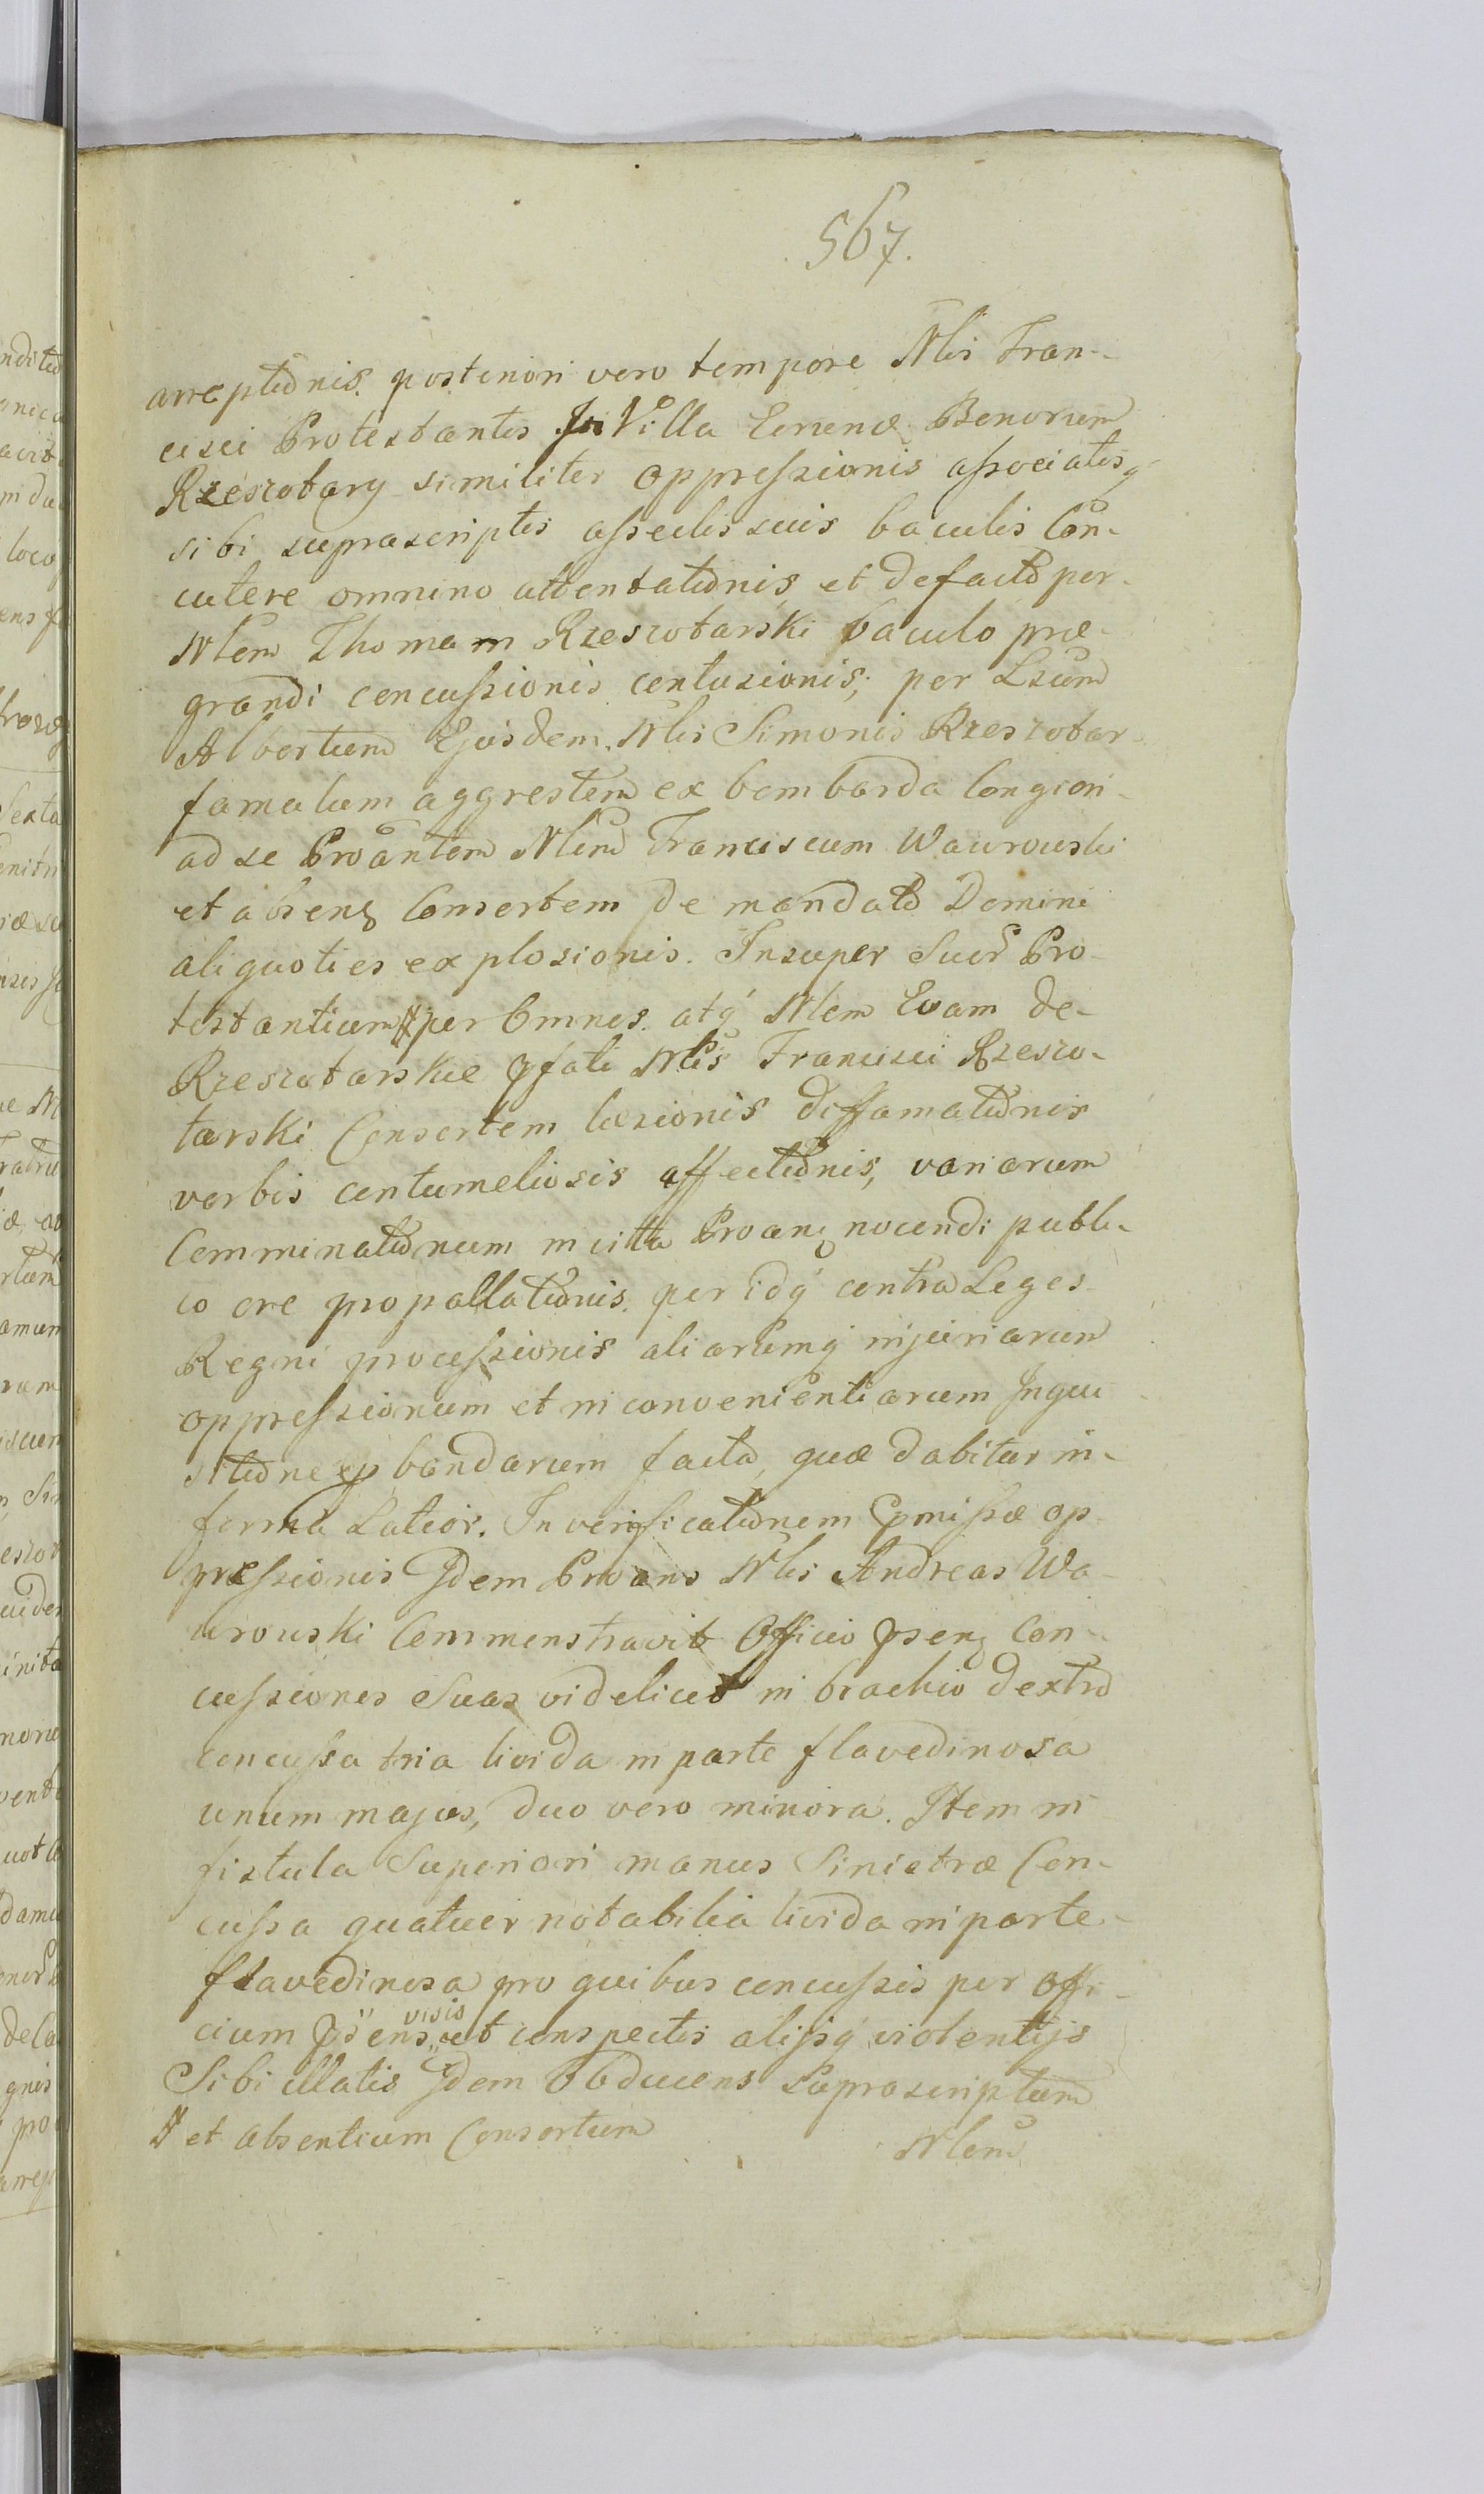 567.
arreptionis. posteriori vero tempore Nlis Fran-
cisci Protestantis In Villa Eorundem Bonorum
Rzeszotary similiter oppressionis associatisq
sibi suprascriptis asseclis suis baculis Con-
cutere omnino attentationis et de facto per
Nlem Thomam Rzeszotarski baculo præ-
grandi concussionis contusionis, per Lsum
Albertum Ejusdem Nlis Simonis Rzeszotar
famulum aggrestem ex bombarda longiori
ad se Proantem Nlem Franciscum Wawrowski
et absens Consortem de mandato Domini
aliquoties explosionis. Insuper Suor Pro-
testantium # per Omnes. atq Nlem Evam de-
Rzeszotarskie pfati Nlis Francisci Rzeszo-
tarski Consortem læsionis diffamationis
verbis contumeliosis affectionis, variarum
Comminationum in vita Proan nocendi publi-
co ore propallationis. per idq contra Leges
Regni processionis aliarumq injuriarum
oppressionum et inconvenientiarum Inqui
sitione pbandarum facta, quæ dabitur in-
forma Latior. In verificationem Pmissæ op
pressionis Idem Proans Nlis Andreas Wa-
wrowski Commenstravit Officio psen Con-
cussiones Suas videlicet in brachio dextro
concussa tria livida in parte flavedinosa
unum majus, duo vero minora. Item in
fistula Superiori manus Sinistræ Con-
cussa quatuor notabilia livida in parte
flavedinosa pro quibus concussis per Offi-
cium Psens visis et conspectis alijsq violentijs
Sibi illatis Idem Obducens Suprascriptum
# et absentium Consortum
Nlem